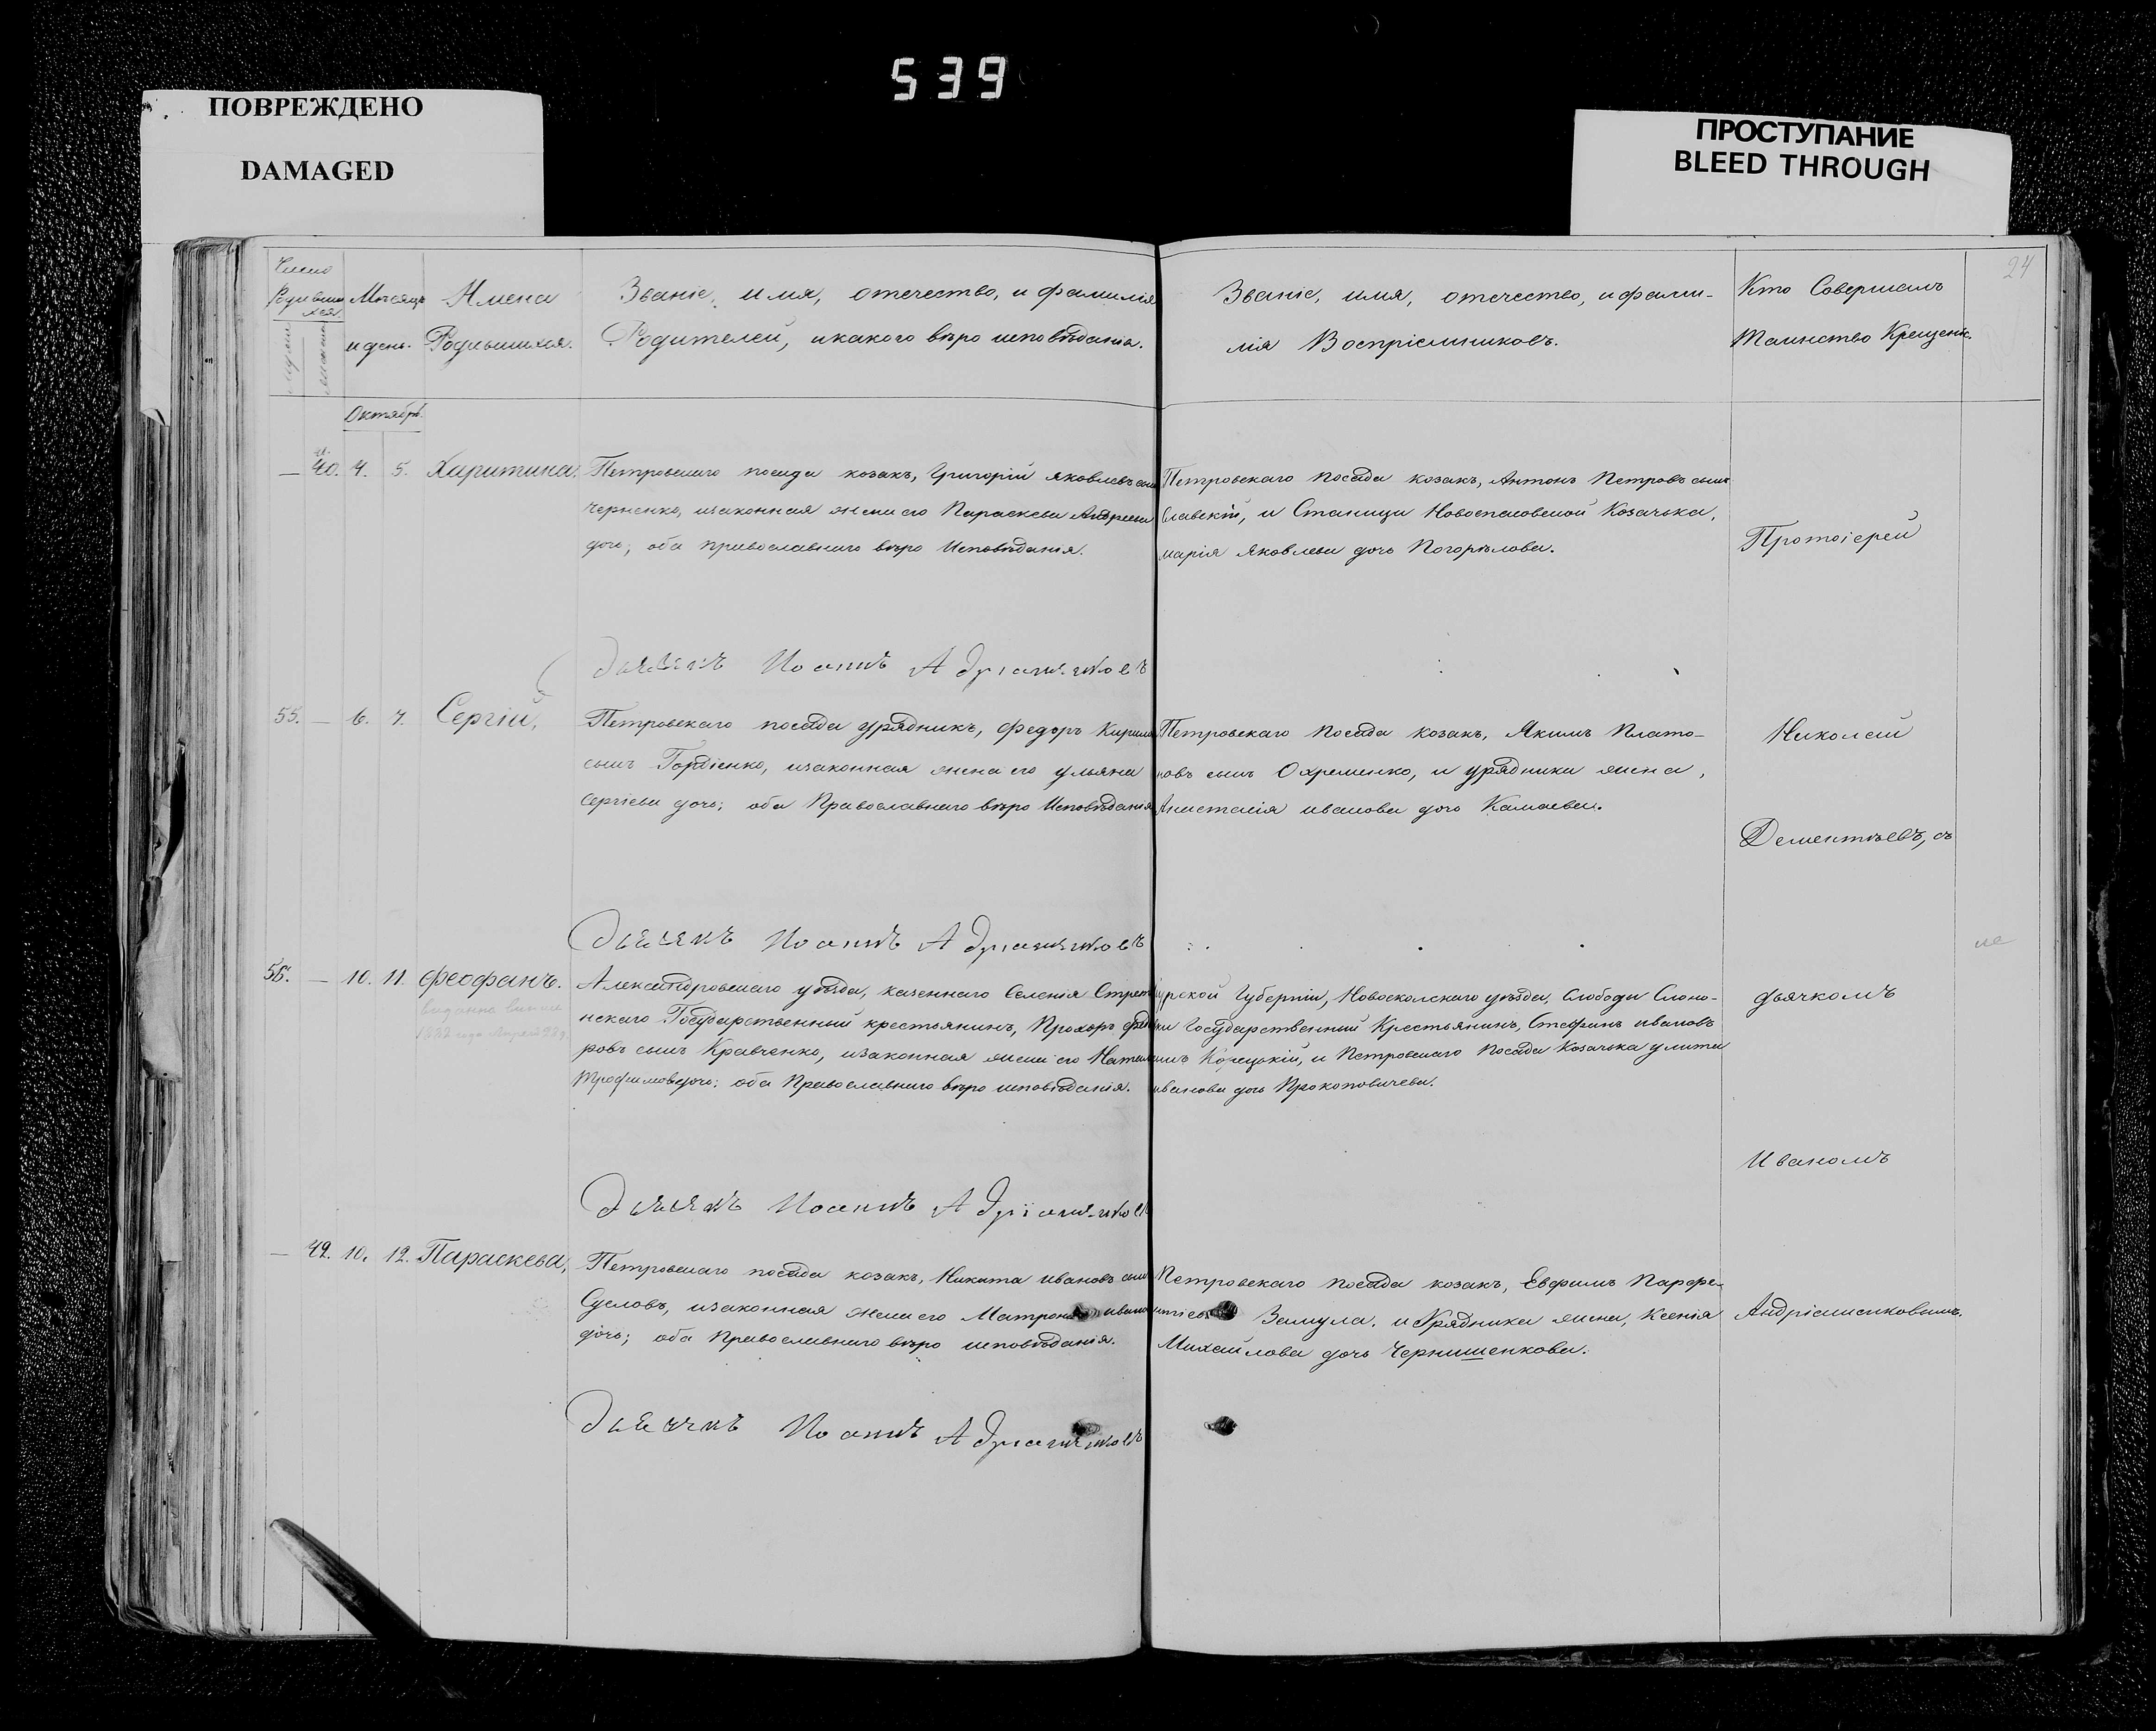 539
ПОВРЕЖДЕНО
DAMAGED
ПРОСТУПАНИЕ
BLEED THROUGH
24
Число
Мѣсяцъ
и день.
Имена
Родившихся.
Званіе, имя, отечество, и фамилія
Родителей, и какого вѣро исповѣданія.
Званіе, имя, отечество, и фами-
лія Воспріемниковъ.
Кто Совершалъ
Таинство Крещенія.
Октябрь.
— 40. 4. 5. Харитина.
Петровскаго посада козакъ, Григорій Яковлевъ сынъ
Черненко, изаконная жена его Параскева Андреева
дочь; оба православнаго вѣро Исповѣданія.
Петровскаго посада козакъ, Антонъ Петровъ сынъ
Славскій, и Станицы Новоспасовской Козачька,
марія Яковлева дочь Погорѣлова.
Протоіерей
Дьячекъ Иоаннъ
55. — 6. 7. Сергій,
Петровскаго посада урядникъ, Федоръ
сынъ Гордіенко, изаконная жена его ульяна
Сергіева дочь; оба Православнаго вѣро Исповѣданія
Петровскаго Посада козакъ, Якимъ Плато-
новъ сынъ Охременко, и урядника жена,
Анастасія иванова дочь Камаева.
Николай
Дементьевъ, съ
Дьячекъ Иоаннъ
56. — 10. 11. Феофанъ.
Александровскаго уѣзда, казеннаго Селенія
нскаго Государственный крестьянинъ, Прохоръ
ровъ сынъ Кравченко, изаконная жена его
Трофимова дочь: оба Православнаго вѣро исповѣданія.
Курской Губерніи, Новоосколскаго уѣзда, Слободы Слоно-
вки Государственный Крестьянинъ, Стефанъ ивановъ
сынъ Корецькій, и Петровскаго Посада Козачька улита
иванова дочь Прокоповичева.
дьячкомъ
Иваномъ
Дьячекъ Иоаннъ
— 42. 10. 12. Параскева,
Петровскаго посада козакъ, Никита ивановъ сынъ
Сусловъ, изаконная жена его Матрона иванова
дочь; оба Православнаго вѣро исповѣданія.
Петровскаго посада козакъ, Евфимъ Парфе-
Замула. и Урядника жена, Ксенія
Михайлова дочь Чернишенкова.
Андріасенковымъ.
Дьячекъ Иоаннъ